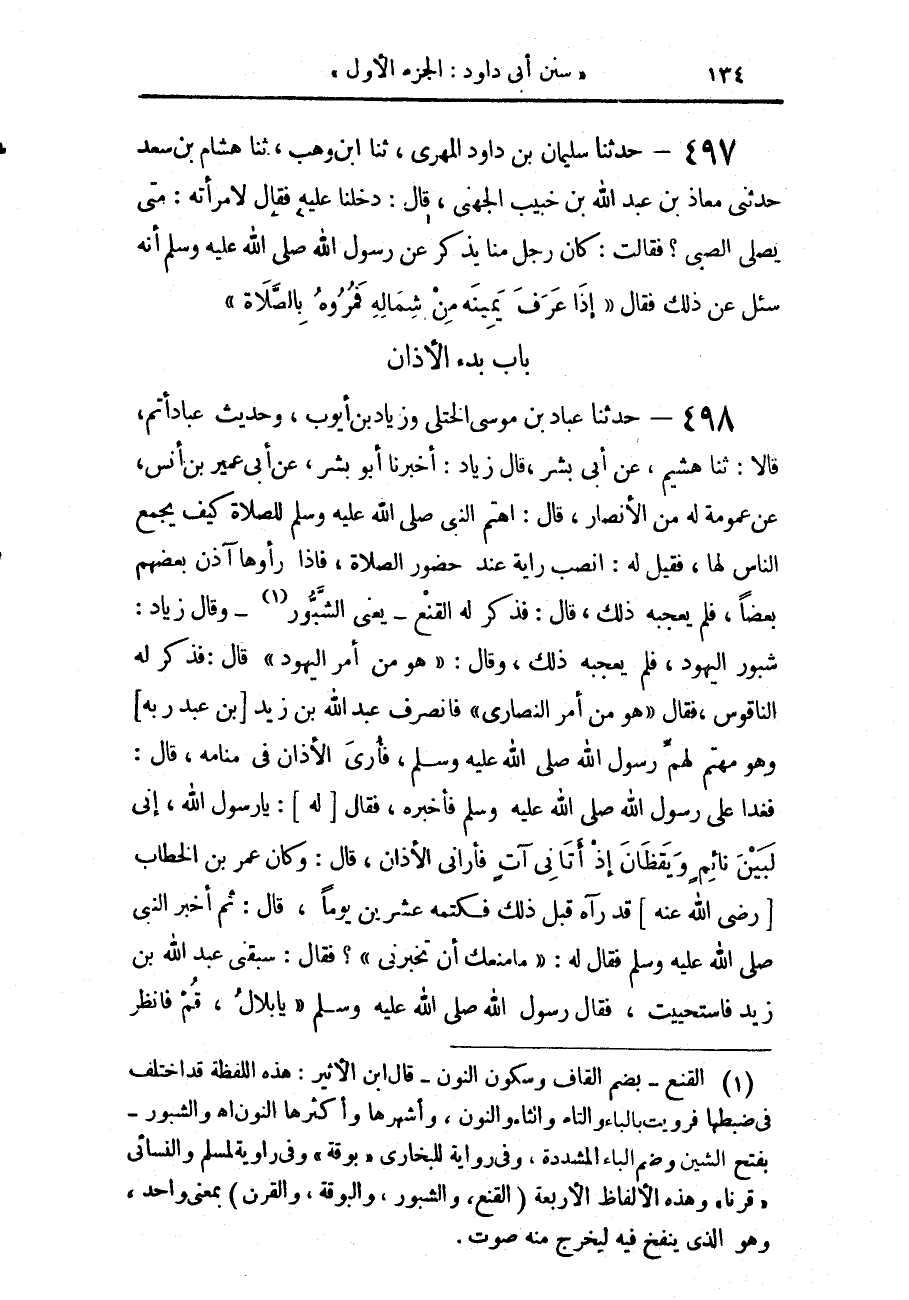 ١٣٤ « سنن أبى داود : الجزء الأول »
٤٩٧ – حدثنا سليمان بن داود المهرى ، ثنا ابن وهب ، ثنا هشام بن سعد
حدثنى معاذ بن عبد الله بن خبيب الجهنى ، قال : دخلنا عليه فقال لامرأته : متى
يصلى الصبى ؟ فقالت : كان رجل منا يذكر عن رسول الله صلى الله عليه وسلم أنه
سئل عن ذلك فقال « إِذَا عَرَفَ يَمِينَه مِنْ شِمَالِهِ فَمُرُوهُ بِالصَّلَاة »
باب بدء الأذان
٤٩٨ – حدثنا عباد بن موسى الختلى وزياد بن أيوب ، وحديث عباد أتم ،
قالا : ثنا هشيم ، عن أبى بشر ، قال زياد : أخبرنا أبو بشر ، عن أبى عمير بن أنس ،
عن عمومة له من الأنصار ، قال : اهتم النبى صلى الله عليه وسلم للصلاة كيف يجمع
الناس لها ، فقيل له : انصب راية عند حضور الصلاة ، فاذا رأوها آذن بعضهم
بعضاً ، فلم يعجبه ذلك ، قال : فذكر له القنْع – يعنى الشَّبُّور (١) – وقال زياد :
شبور اليهود ، فلم يعجبه ذلك ، وقال : « هو من أمر اليهود » قال : فذكر له
الناقوس ، فقال « هو من أمر النصارى » فانصرف عبد الله بن زيد [ بن عبد ربه ]
وهو مهتم لهمِّ رسول الله صلى الله عليه وسلم ، فأُرىَ الأذان فى منامه ، قال :
فغدا على رسول الله صلى الله عليه وسلم فأخبره ، فقال [ له ] : يارسول الله ، إنى
لَبَيْنَ نائِمٍ وَيَقظَانَ إذْ أَتَانِى آتٍ فأرانى الأذان ، قال : وكان عمر بن الخطاب
[ رضى الله عنه ] قد رآه قبل ذلك فكتمه عشرين يوماً ، قال : ثم أخبر النبى
صلى الله عليه وسلم فقال له : « مامنعك أن تخبرنى » ؟ فقال : سبقنى عبد الله بن
زيد فاستحييت ، فقال رسول الله صلى الله عليه وسلم « يابلالُ ، قُمْ فانظر
(١) القنع – بضم القاف وسكون النون – قال ابن الأثير : هذه اللفظة قد اختلف
فى ضبطها فرويت بالباء والتاء والثاء والنون ، وأشهرها وأكثرها النون اه والشبور –
بفتح الشين وضم الباء المشددة ، وفى رواية للبخارى « بوقة » وفى راوية لمسلم والنسائى
« قرنا » وهذه الألفاظ الأربعة ( القنع ، والشبور ، والبوقة ، والقرن ) بمعنى واحد ،
وهو الذى ينفخ فيه ليخرج منه صوت .